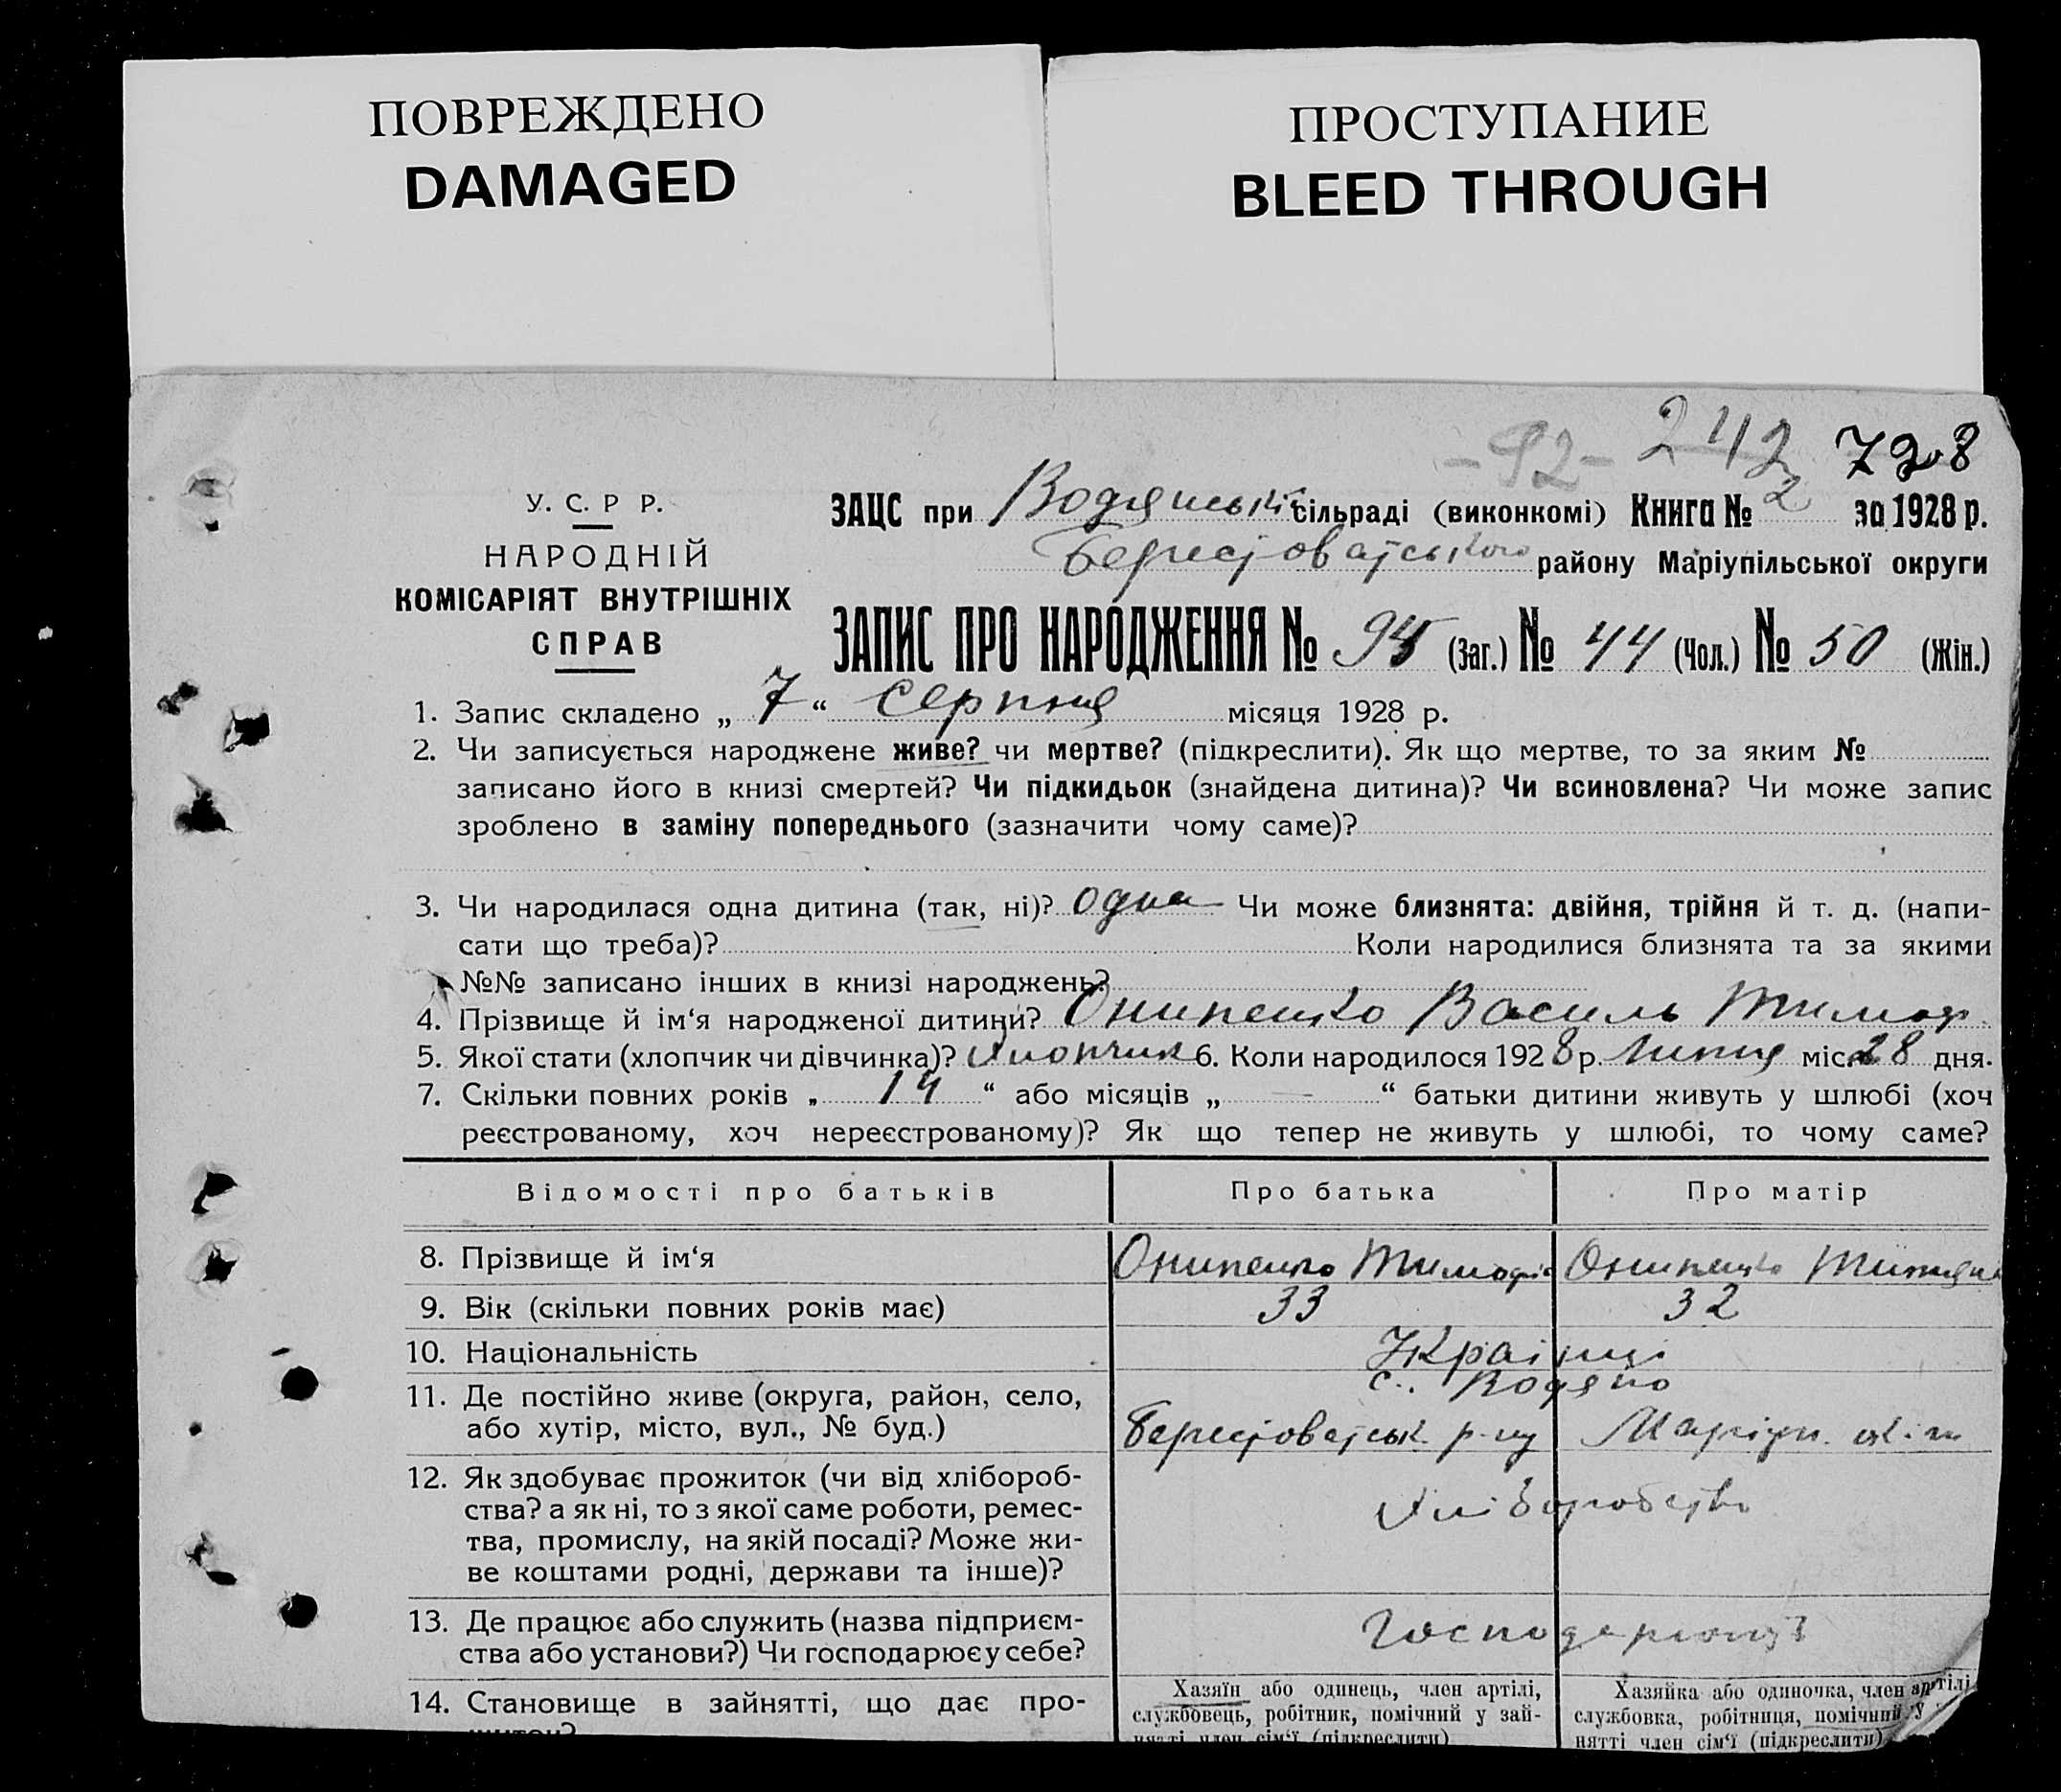 ПОВРЕЖДЕНО
DAMAGED
ПРОСТУПАНИЕ
BLEED THROUGH
-92- 242 728
У. С. Р Р.
НАРОДНІЙ
КОМІСАРІЯТ ВНУТРІШНІХ
СПРАВ
ЗАЦС при Водянській сільраді (виконкомі) Книга № 2 за 1928 р.
Берестоватського району Маріупільської округи
ЗАПИС ПРО НАРОДЖЕННЯ № (Заг.) № 44 (Чол.) № 50 (Жін.)
1. Запис складено „ 7 “ серпня місяця 1928 р.
2. Чи записується народжене живе? чи мертве? (підкреслити). Як що мертве, то за яким №
записано його в книзі смертей? Чи підкидьок (знайдена дитина)? Чи всиновлена? Чи може запис
зроблено в заміну попереднього (зазначити чому саме)?
3. Чи народилася одна дитина (так, ні)? одна Чи може близнята: двійня, трійня й т. д. (напи-
сати що треба)? Коли народилися близнята та за якими
№№ записано інших в книзі народжень?
4. Прізвище й ім‘я народженої дитини? Онипенко Василь Тимоф.
5. Якої стати (хлопчик чи дівчинка)? Хлопчик 6. Коли народилося 1928 р. липня міс. 28 дня.
7. Скільки повних років „ 14 “ або місяців „ — “ батьки дитини живуть у шлюбі (хоч
реєстрованому, хоч нереєстрованому)? Як що тепер не живуть у шлюбі, то чому саме?
Відомості про батьків Про батька Про матір
8. Прізвище й ім‘я Онипенко Тимофій Онипенко
9. Вік (скільки повних років має) 33 32
10. Національність Українці
11. Де постійно живе (округа, район, село,
або хутір, місто, вул., № буд.)
с. Водяно
Берестоватськ. р-ну Маріуп. ок-ги
12. Як здобуває прожиток (чи від хлібороб-
ства? а як ні, то з якої саме роботи, ремес-
тва, промислу, на якій посаді? Може жи-
ве коштами родні, держави та інше)?
Хліборобство
13. Де працює або служить (назва підприєм-
ства або установи?) Чи господарює у себе?
Господарюють
14. Становище в зайнятті, що дає про-
житок?
Хазяїн або одинець, член артілі,
службовець, робітник, помічний у зай-
нятті член сім‘ї (підкреслити)
Хазяйка або одиночка, член артілі,
службовка, робітниця, помічний у
нятті член сім‘ї (підкреслити)